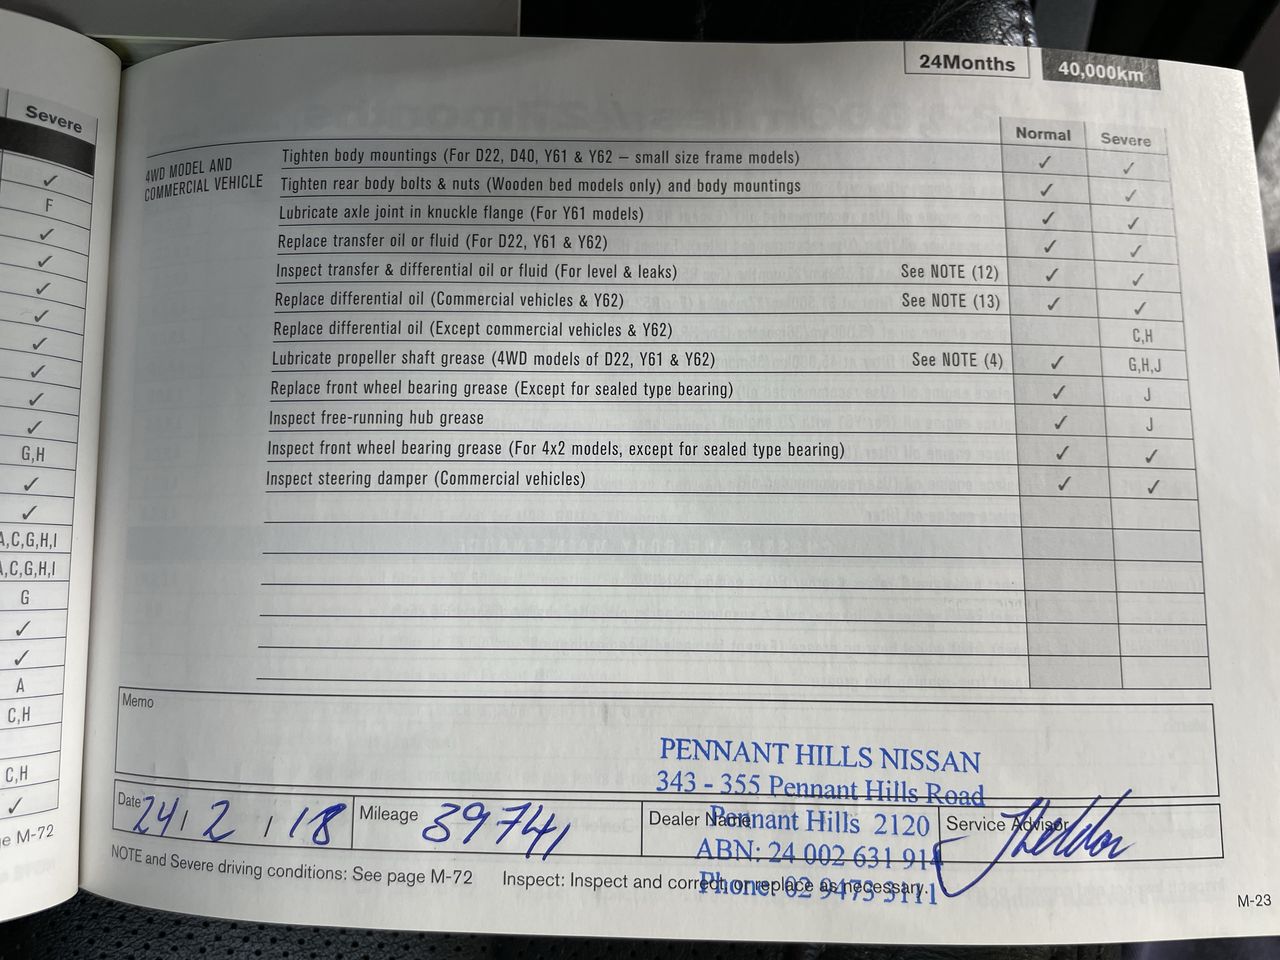 Severe
✓
F
✓
✓
✓
✓
✓
✓
✓
✓
G,H
✓
✓
A,C,G,H,I
A,C,G,H,I
G
✓
✓
A
C,H
C,H
✓
M-72
24Months 40,000km
Normal Severe
4WD MODEL AND
COMMERCIAL VEHICLE
Tighten body mountings (For D22, D40, Y61 & Y62 – small size frame models) ✓ ✓
Tighten rear body bolts & nuts (Wooden bed models only) and body mountings ✓ ✓
Lubricate axle joint in knuckle flange (For Y61 models) ✓ ✓
Replace transfer oil or fluid (For D22, Y61 & Y62) ✓ ✓
Inspect transfer & differential oil or fluid (For level & leaks) See NOTE (12) ✓ ✓
Replace differential oil (Commercial vehicles & Y62) See NOTE (13) ✓ ✓
Replace differential oil (Except commercial vehicles & Y62) C,H
Lubricate propeller shaft grease (4WD models of D22, Y61 & Y62) See NOTE (4) ✓ G,H,J
Replace front wheel bearing grease (Except for sealed type bearing) ✓ J
Inspect free-running hub grease ✓ J
Inspect front wheel bearing grease (For 4x2 models, except for sealed type bearing) ✓ ✓
Inspect steering damper (Commercial vehicles) ✓ ✓
Memo
PENNANT HILLS NISSAN
343 - 355 Pennant Hills Road
Pennant Hills 2120
ABN: 24 002 631 914
Phone: 02 9473 3111
Date 24 / 2 / 18 Mileage 39741 Dealer Name Service Advisor
NOTE and Severe driving conditions: See page M-72 Inspect: Inspect and correct or replace as necessary.
M-23